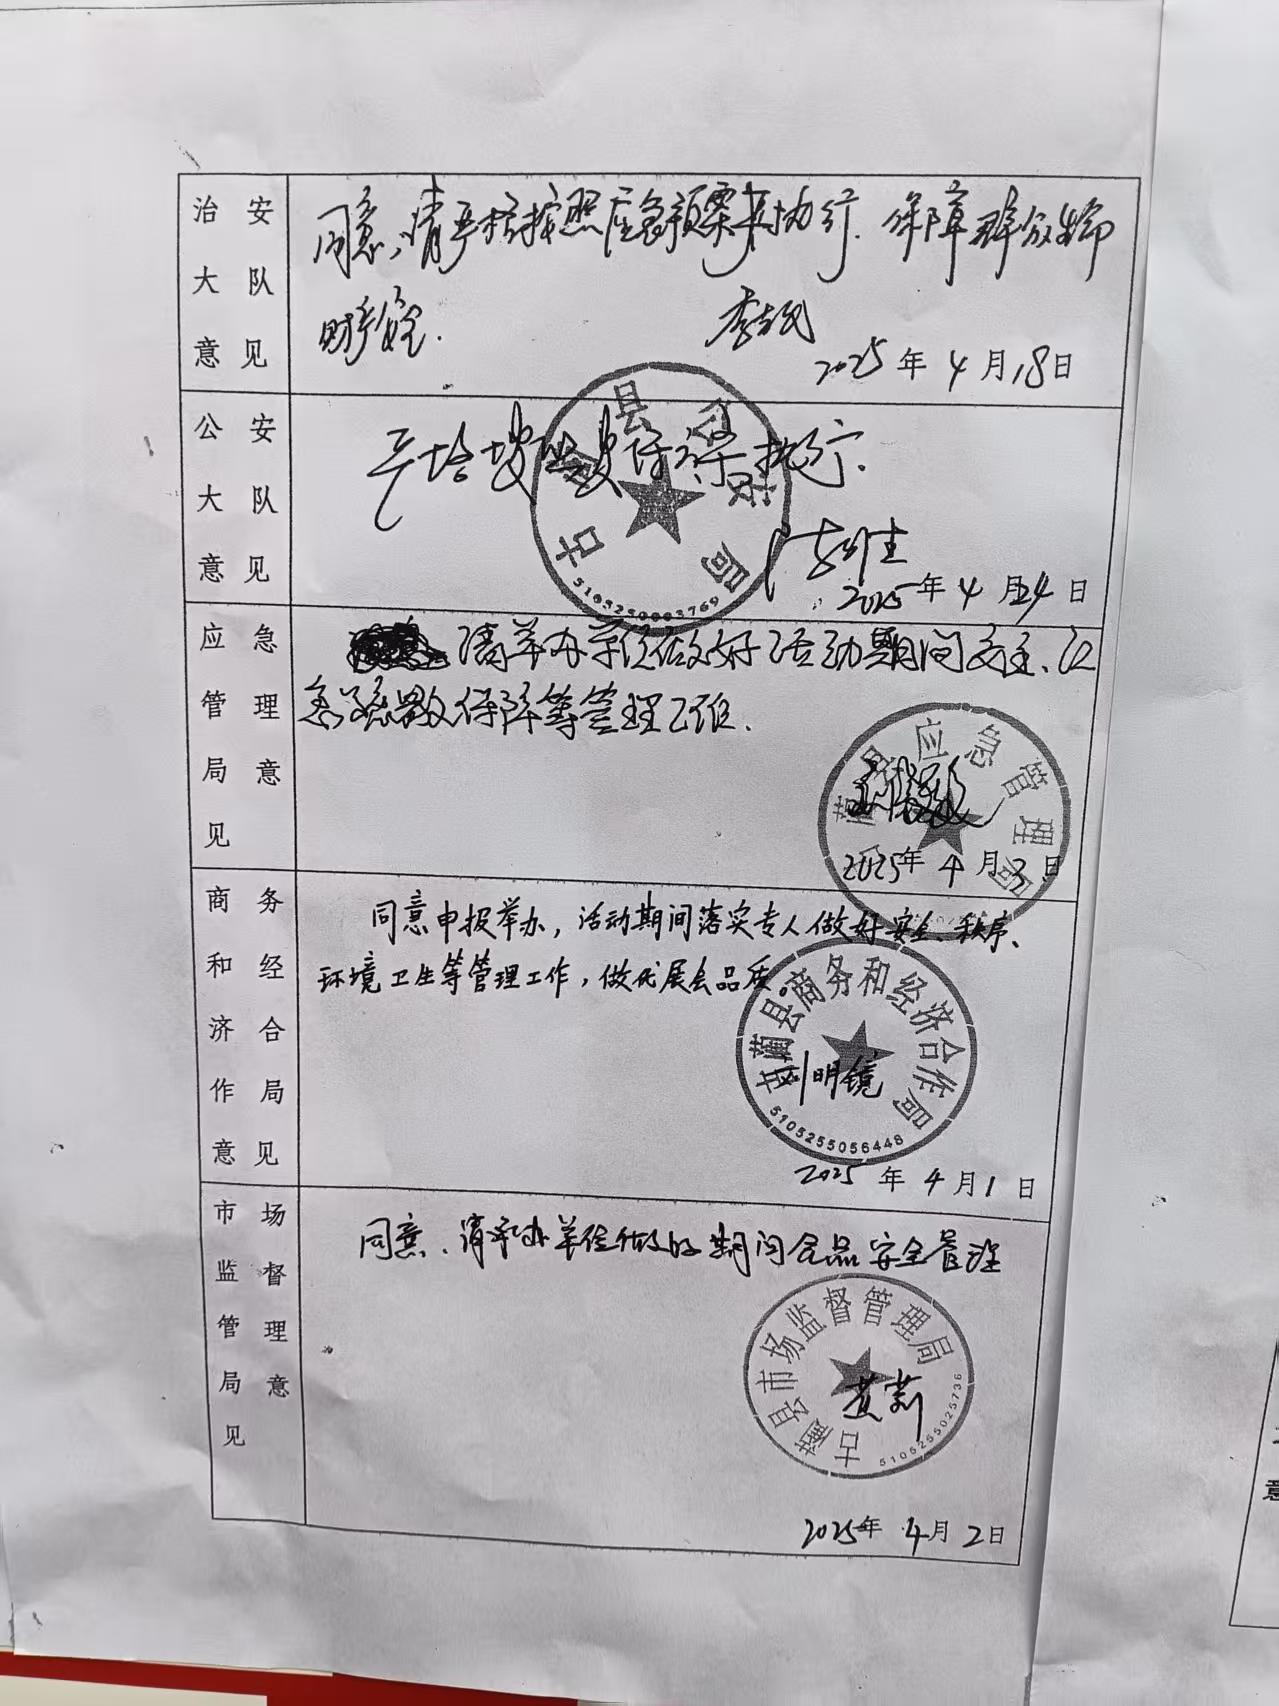 治安
大队
意见
同意，请严格按照应急预案来执行.保障群众生命
财产安全.
2025年4月18日
公安
大队
意见
严格按照 执行.
2025年4月24日
古 县公安局
5105250003769
应急
管理
局意
见
请举办单位做好活动期间安全、应
急疏散保障等管理工作.
蔺县应急管理局
2025年4月3日
商务
和经
济合
作局
意见
同意申报举办，活动期间落实专人做好安全、秩序、
环境卫生等管理工作，做优展会品质。
古蔺县商务和经济合作局
刘明镜
5105255056448
2025年4月1日
市场
监督
管理
局意
见
同意.请承办单位做好期间食品安全管理
古蔺县市场监督管理局
黄莉
5105255025736
2025年4月2日
意